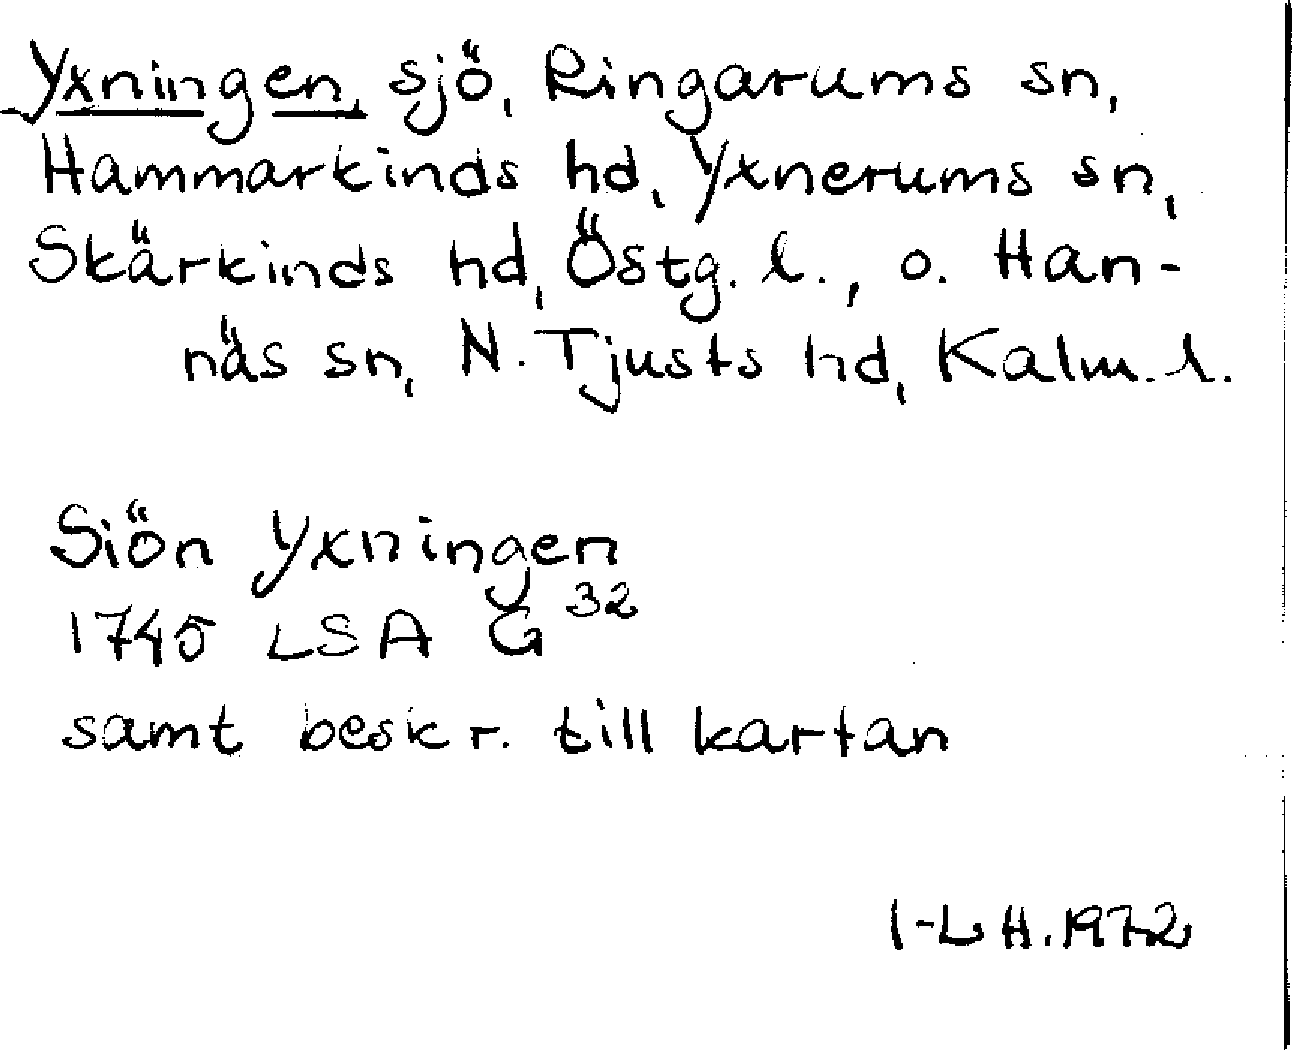 Yxningen, sjö, Ringarums sn,
Hammarkinds hd, Yxnerums sn,
Skärkinds hd, Östg. l., o. Han-
näs sn, N. Tjusts hd, Kalm. l.
Siön Yxningen
1745 LSA G 32
samt beskr. till kartan
I-L H. 1972